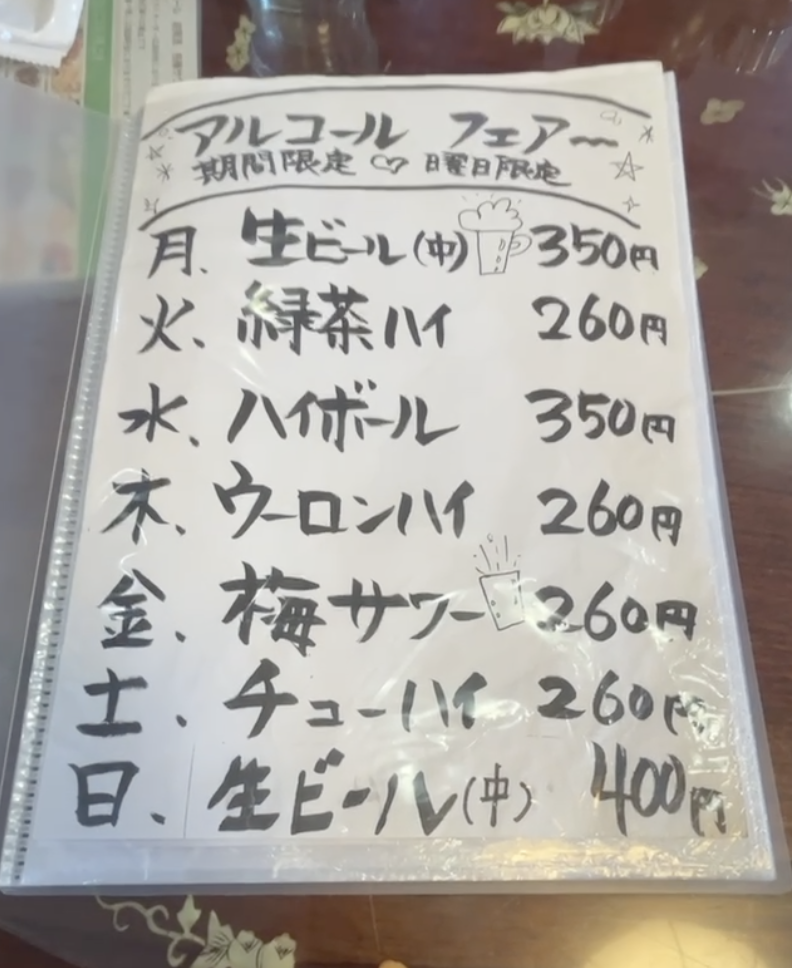 アルコール フェアー
期間限定 ♡ 日曜日限定
月、生ビール(中) 350円
火、緑茶ハイ 260円
水、ハイボール 350円
木、ウーロンハイ 260円
金、梅サワー 260円
土、チューハイ 260円
日、生ビール(中) 400円